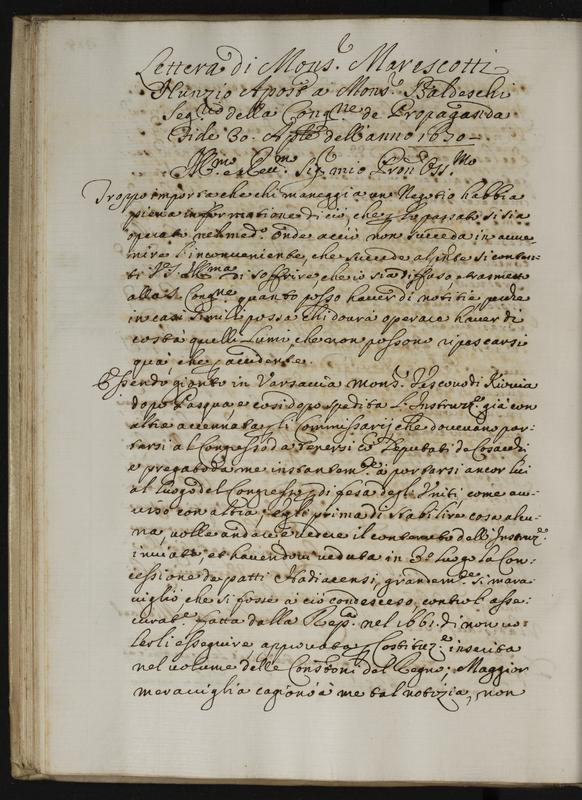 Lettera di Mons.r Marescotti
Nunzio Apost.o a Mons.r Baldeschi
Seg.rio della Cong.ne de Propaganda
Fide 30. Ap.le dell'anno 1670.
Ill.mo e Reu. Sig. mio Pron Oss.mo
Troppo importa che chi maneggia un Negotio habbia
piena informatione di ciò, che p lo passato si sia
operato nel med.o onde acciò non succeda in auue-
nire l'inconueniente, che succede al p̃nte si conten-
ti V.S. Ill.ma di soffrire, che io sia diffuso e trasmetta
alla S. Cong.ne quanto posso hauer di notitie perche
in casi simili possa chi dourà operare hauer di
costà quelli Lumi, che non possono ripescarsi
quà che
Essendo gionto in Varsauia Mons.r Vescouo di Kiouia
dopo Pasqua e così dopo spedita l'Instruz.e già con
altra accennata gli Commissarij che doueuano por-
tarsi al Congresso da tenersi co' Deputati de Cosacchi
e pregato da me instantem.te a portarsi ancor lui
al luogo del Congresso p difesa degl'Uniti, come au-
uiso con altra; egli prima di stabilire cosa alcu-
na, volle andare à vedere il contenuto dell'Instruz.e
inuiata, et hauendoui veduta in 3.o luogo la Con-
cessione de patti Hadiacensi, grandem.te si mara-
uigliò che si fosse à ciò condesceso, contro l'asse-
curat.e fatta dalla Rep.ca nel 1661. di non vo-
lerli esseguire approuata p Costituz.e inserita
nel volume delle Const.oni del Regno; Maggior
merauiglia cagionò à me tal notizia, non